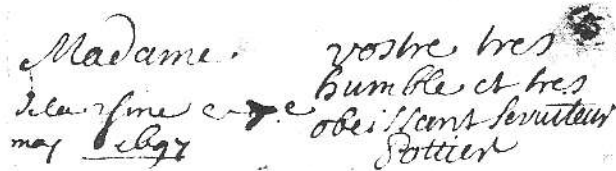 Madame.
vostre tres
humble et tres
obeissant serviteur
Pottier
de la
may